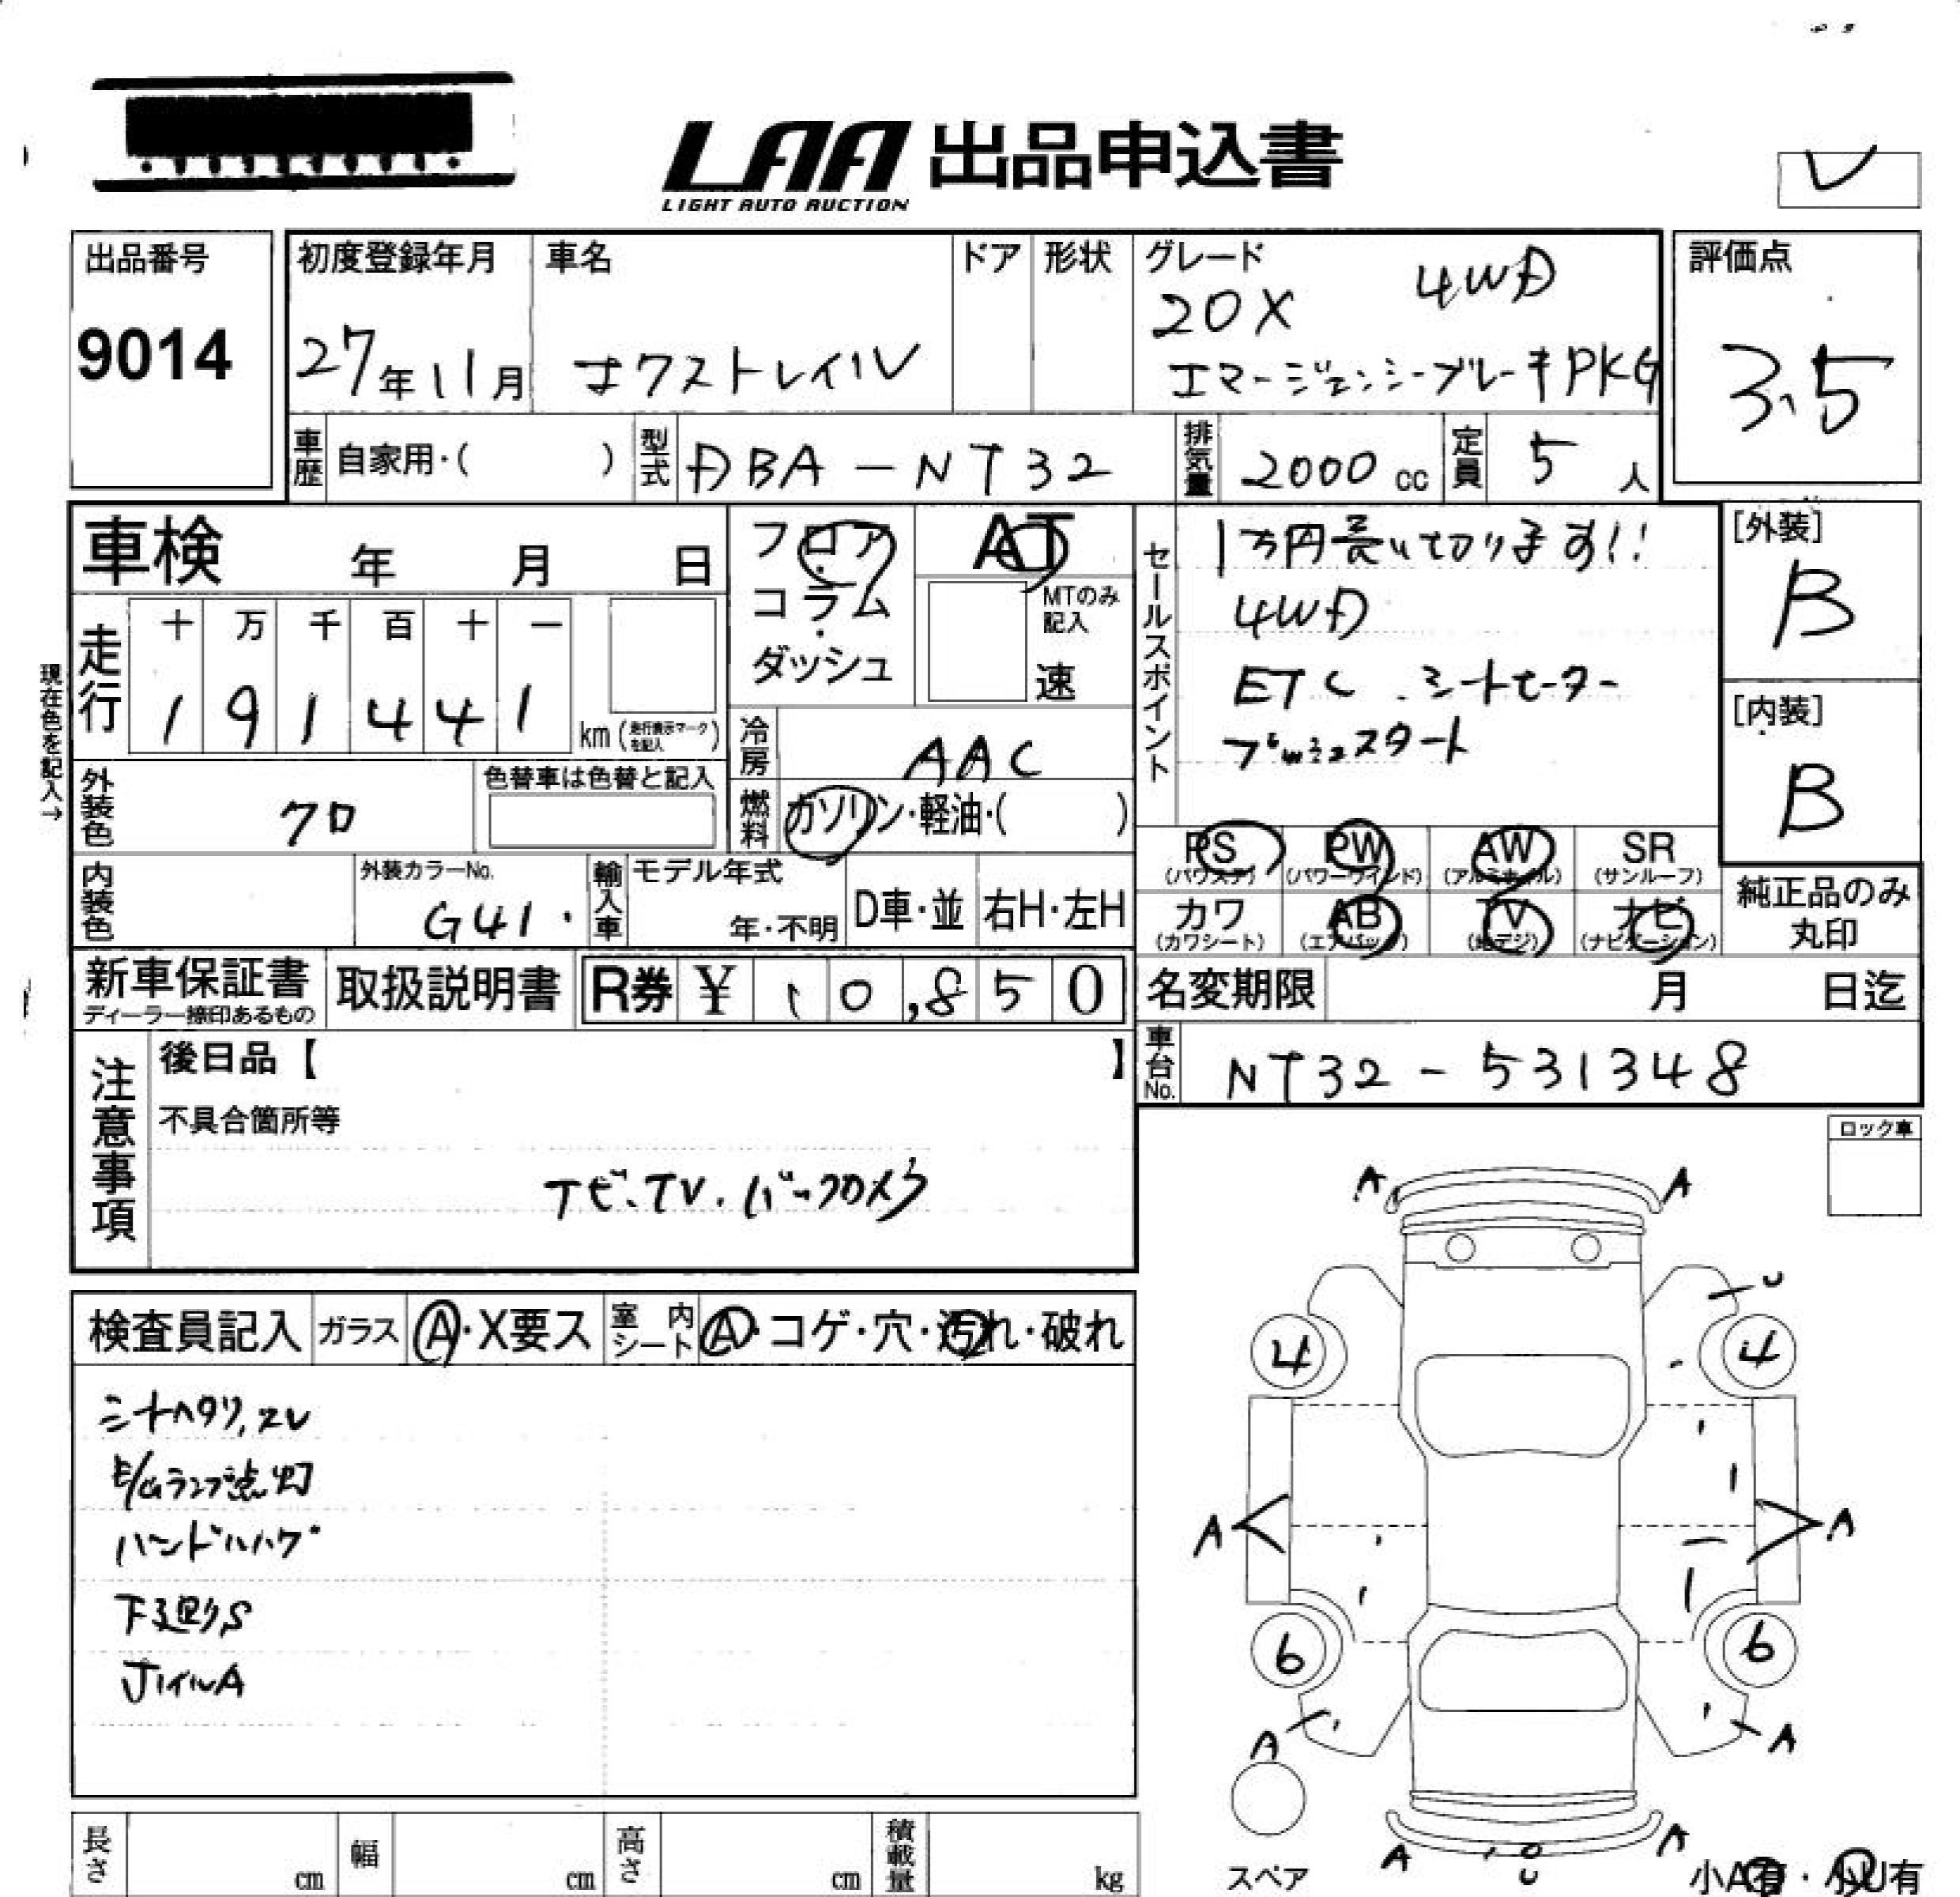 LAA 出品申込書
LIGHT AUTO AUCTION
出品番号
9014
初度登録年月
27年11月
車名
エクストレイル
ドア
形状
グレード
20X 4WD
エマージェンシーブレーキPKG
評価点
3.5
車歴
自家用・( )
型式
DBA-NT32
排気量
2000 cc
定員
5 人
車検 年 月 日
フロア・コラム・ダッシュ
AT
MTのみ記入
速
セールスポイント
1万円売り切ります!!
4WD
ETC シートヒーター
プッシュスタート
[外装]
B
[内装]
B
現在色を記入→
走行
十 万 千 百 十 一
1 9 1 4 4 1
km (走行表示マークを記入)
冷房
AAC
燃料
ガソリン・軽油・( )
外装色
クロ
色替車は色替と記入
内装色
外装カラーNo.
G41
輸入車
モデル年式
年・不明
D車・並
右H・左H
PS
(パワステ)
PW
(パワーウインド)
AW
(アルミホイル)
SR
(サンルーフ)
カワ
(カワシート)
AB
(エアバック)
TV
(地デジ)
ナビ
(ナビゲーション)
純正品のみ
丸印
新車保証書
ディーラー捺印あるもの
取扱説明書
R券 ¥ 10,850
名変期限 月 日迄
車台No.
NT32-531348
注意事項
後日品【 】
不具合箇所等
ナビ、TV、バックカメラ
ロック車
検査員記入
ガラス
A・X要ス
室内シート
A・コゲ・穴・汚れ・破れ
シートヘタリ, スレ
E/Gランプ点灯
ハンドルハゲ
下廻りS
ホイルA
A A
U
4 4
A A
6 6
A A
A U A
スペア
小A有・小U有
長さ cm
幅 cm
高さ cm
積載量 kg